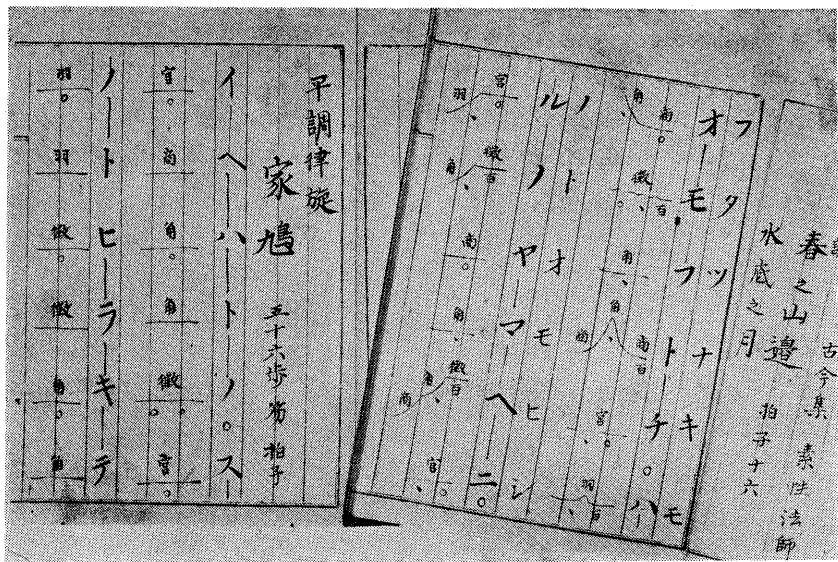 古今集 素性法師
春之山邊
水底之月 拍子十六
フタツナキモ
オーモーフートーチ。ハ
角 商。 徴百、 角、 角 商 商百 宮。 羽百、
ノトオモヒシ
ルノヤーマーヘーニ。
宮。 羽、 徴百 角、 商。 角、 徴百 角 商、 宮、
平調律旋
家鳩 五十六歩 笏拍子
イーヘーハートーノ。スー
宮。 商 角。 角 徴。。 宮。
ノート ヒーラーキーテ
羽。 羽 徴。 徴 角。 角